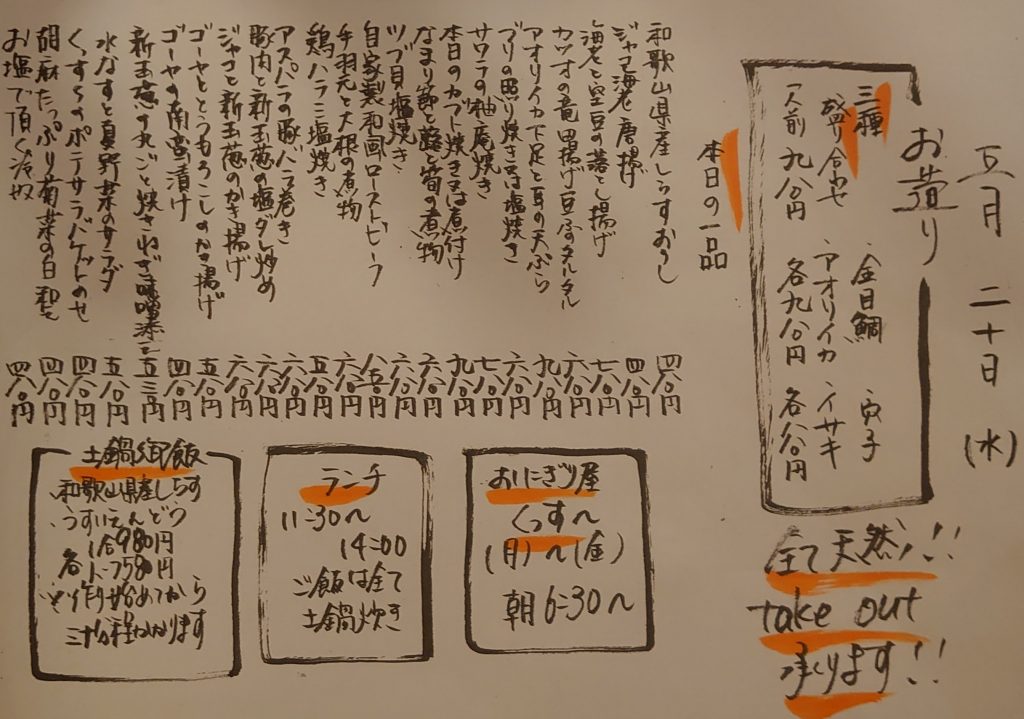 五月 二十日 (水)
お造り
三種
盛り合わせ
人前 九八〇円
金目鯛
アオリイカ イサキ
各九八〇円
全て天然!!
take out
承ります!!
本日の一品
和歌山県産しらすおろし 四八〇円
ジャコ海老唐揚げ 四八〇円
海老と空豆の落とし揚げ 七八〇円
カツオの竜田揚げ豆ふのタルタル
アオリイカ下足と耳の天ぷら
ブリの照り焼き又は塩焼き
サワラの柚庵焼き
本日のカブト焼き又は煮付け
なまり節と蕗と筍の煮物
ツブ貝塩焼き
自家製和風ローストビーフ
手羽元と大根の煮物
鶏ハラミ塩焼き
アスパラの豚バラ巻き
豚肉と新玉葱の塩ダレ炒め
ジャコと新玉葱のかき揚げ
ゴーヤととうもろこしのかき揚げ
ゴーヤの南蛮漬け
新玉葱の丸ごと焼きねぎ味噌添え
水なすと真野菜のサラダ
くっすんのポテサラバケットのせ
胡麻たっぷり菊菜の白和え
お塩で頂く冷奴
おにぎり屋
くっす〜
(月)〜(金)
朝6:30〜
ランチ
11:30〜
14:00
ご飯は全て
土鍋炊き
土鍋御飯
・和歌山県産しらす
・うすいえんどう
1合980円
各
580円
※作り始めてから
三十分程かかります